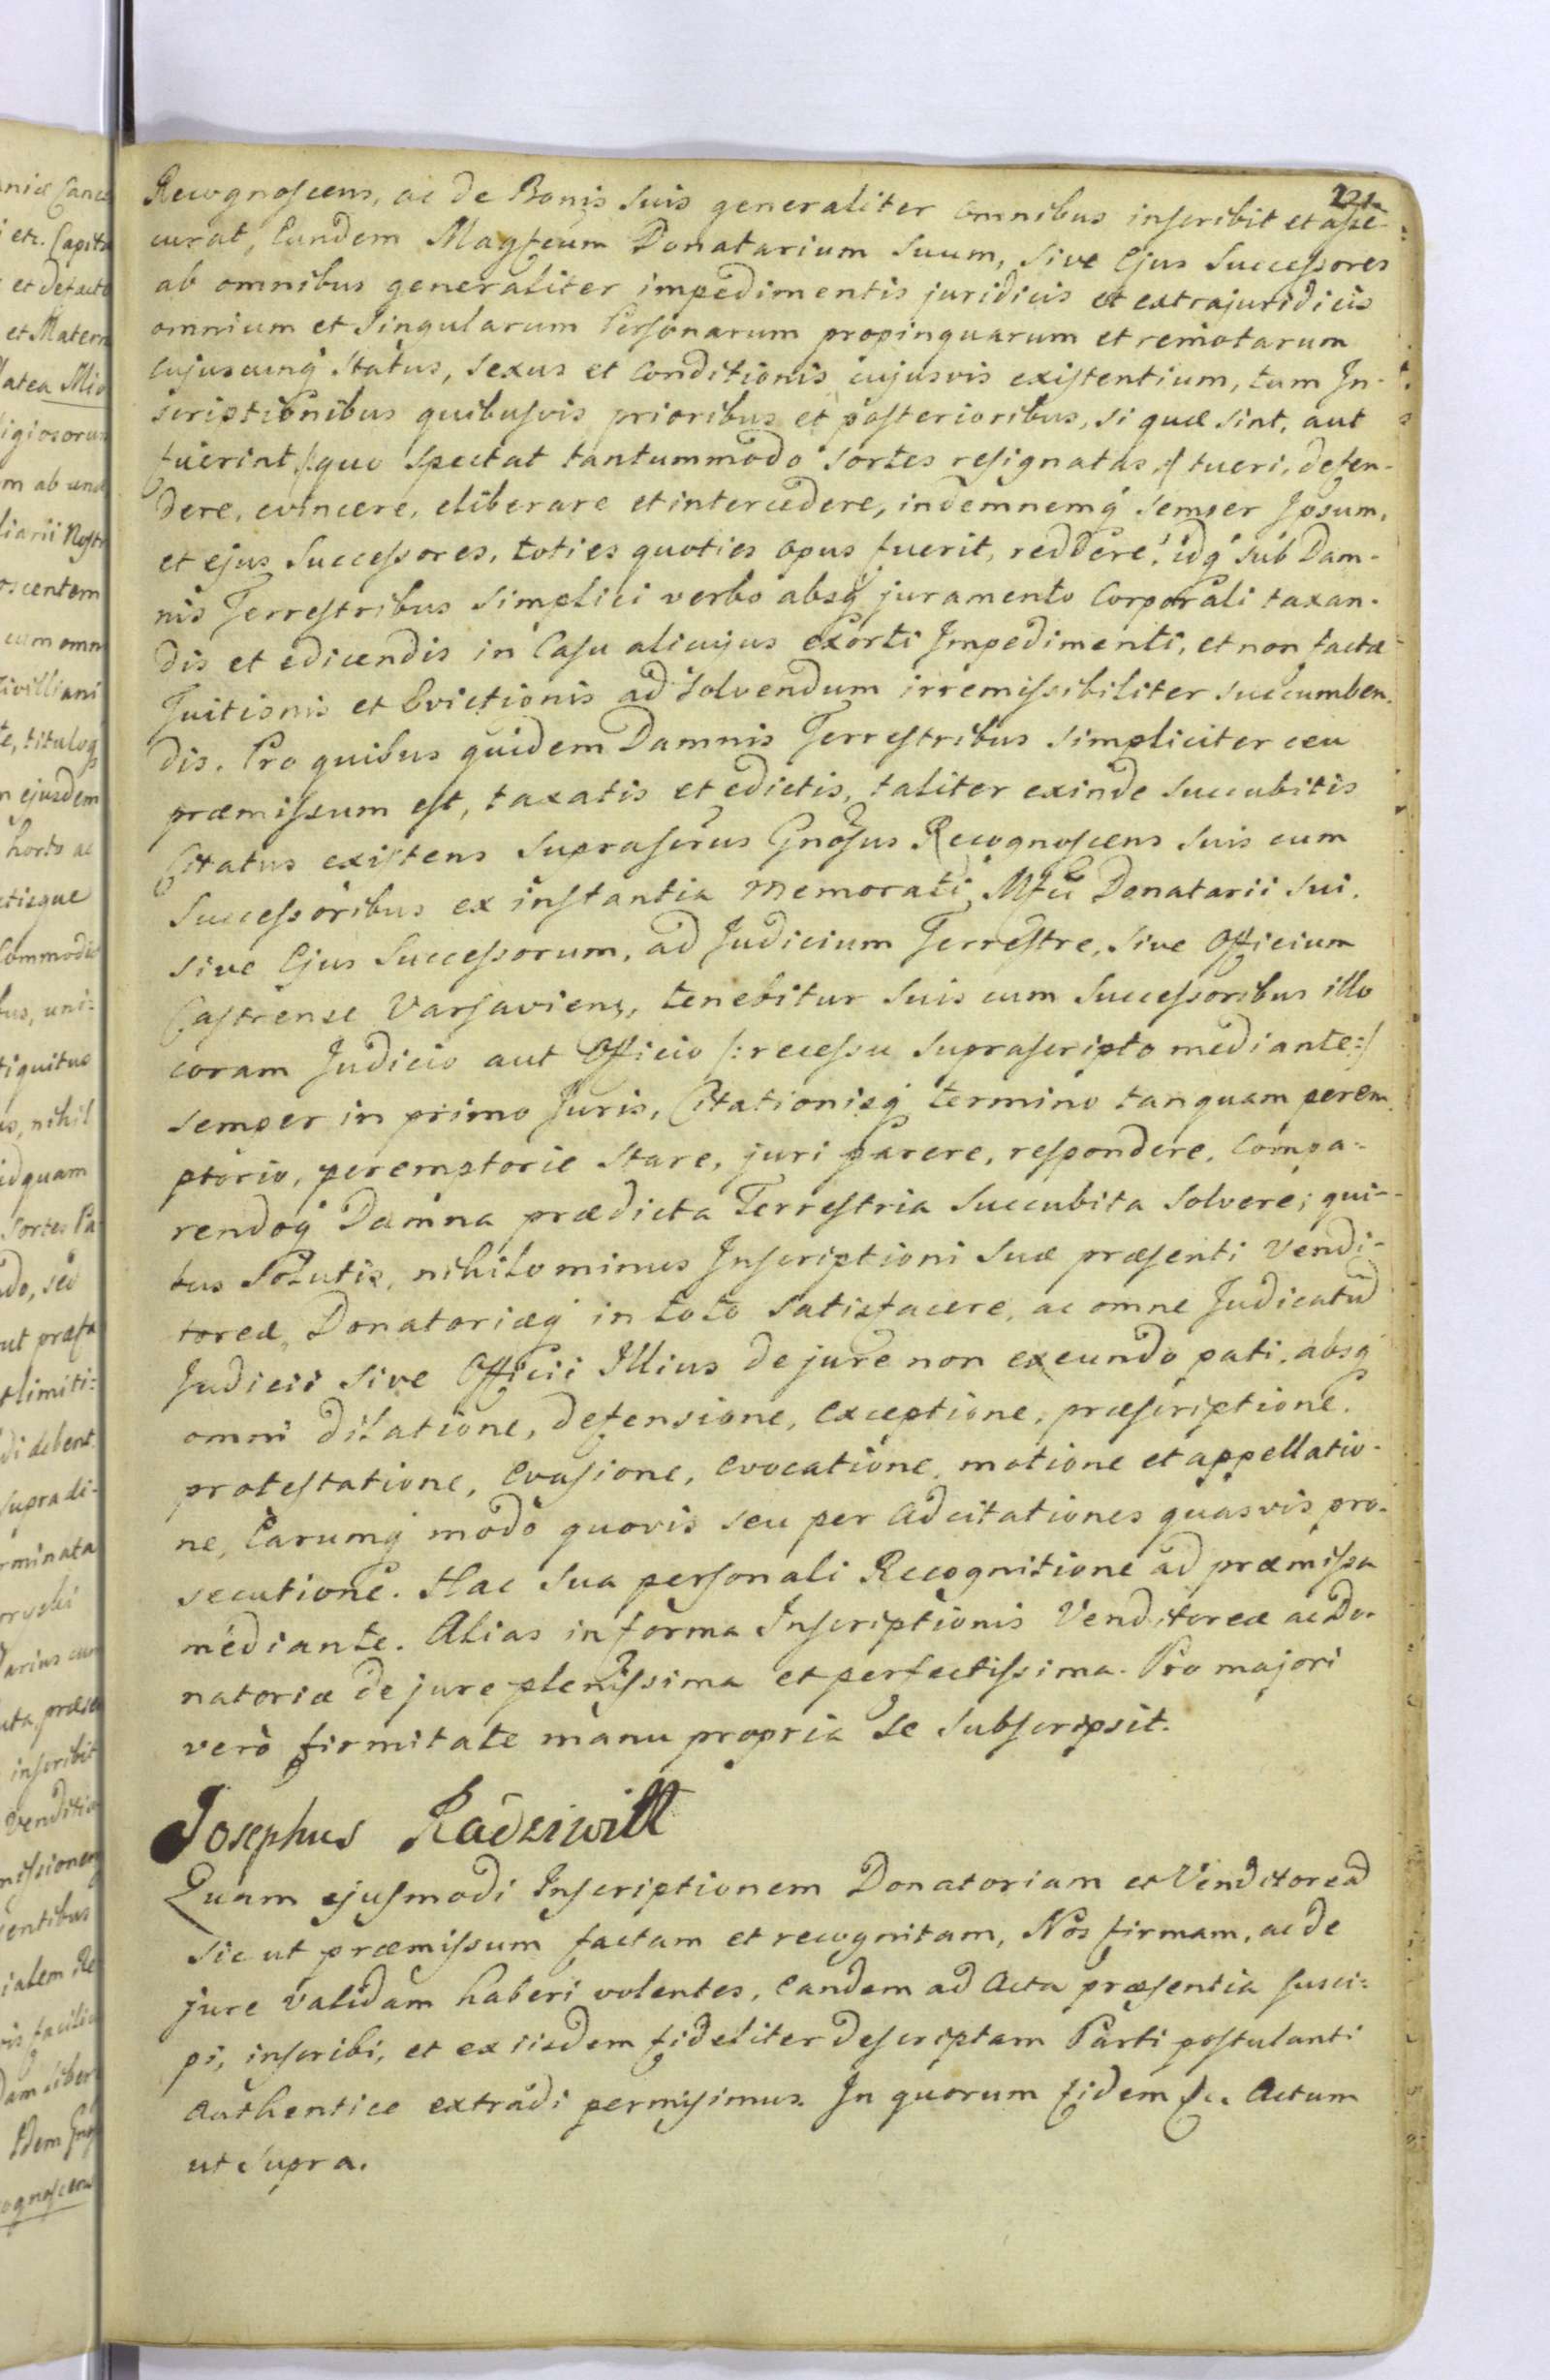 221.
Recognoscens, ac de Bonis Suis generaliter omnibus inscribit et asse-
curat, Eundem Magfcum Donatarium Suum, sive Ejus Successores
ab omnibus generaliter impedimentis juridicis et extrajuridicis
omnium et Singularum Personarum propinquarum et remotarum
Cujuscunq Status, Sexus et Conditionis cujusvis existentium, tum In-
scriptionibus quibusvis prioribus et posterioribus, si quæ sint, aut
fuerint /: quo Spectat tantummodo Sortes resignatas :/ tueri, defen-
dere, evincere, eliberare et intercedere, indemnemq semper Ipsum,
et ejus Successores, toties quoties opus fuerit, reddere, idq sub Dam-
nis Terrestribus Simplici verbo absq juramento Corporali taxan-
dis et edicendis in Casu alicujus exorti Impedimenti, et non factæ
Tuitionis et Evictionis ad solvendum irremissibiliter succumben-
dis. Pro quibus quidem Damnis Terrestribus simpliciter ceu
præmissum est, taxatis et edictis, taliter exinde Succubitis
Citatus existens Suprascrus Gnosus Recognoscens Suis cum
Successoribus ex instantia memorati Mfci Donatarii Sui,
sive Ejus Successorum, ad Judicium Terrestre, Sive Officium
Castrense Varsaviens, tenebitur Suis cum Successoribus illo
coram Judicio aut Officio /: recessu Suprascripto mediante :/
semper in primo Juris, Citationisq termino tanquam perem-
ptorio, peremptorie Stare, juri parere, respondere, Compa-
rendoq Damna prædicta Terrestria Succubita Solvere; qui-
bus Solutis, nihilominus Inscriptioni Suæ præsenti Vendi-
toreæ, Donatoriæq in toto Satisfacere, ac omne Judicatud
Judicii Sive Officii Illius de jure non exeundo pati, absq
omni dilatione, defensione, exceptione, præscriptione,
protestatione, evasione, evocatione, motione et appellatio-
ne, Earumq modo quovis seu per adcitationes quasvis pro-
secutione. Hac Sua personali Recognitione ad præmissa
mediante. Alias in forma Inscriptionis Venditoreæ ac Do-
natoriæ de jure plenissima et perfectissima. Pro majori
verò firmitate manu propria Se Subscripsit.
Josephus Radziwill
Quam ejusmodi Inscriptionem Donatoriam et Venditoread
sic ut præmissum factam et recognitam, Nos firmam, ac de
jure Validam haberi volentes, eandem ad Acta præsentia susci-
pi, inscribi, et ex iisdem fideliter descriptam Parti postulanti
authentice extradi permisimus. In quorum fidem &c. Actum
ut Supra.